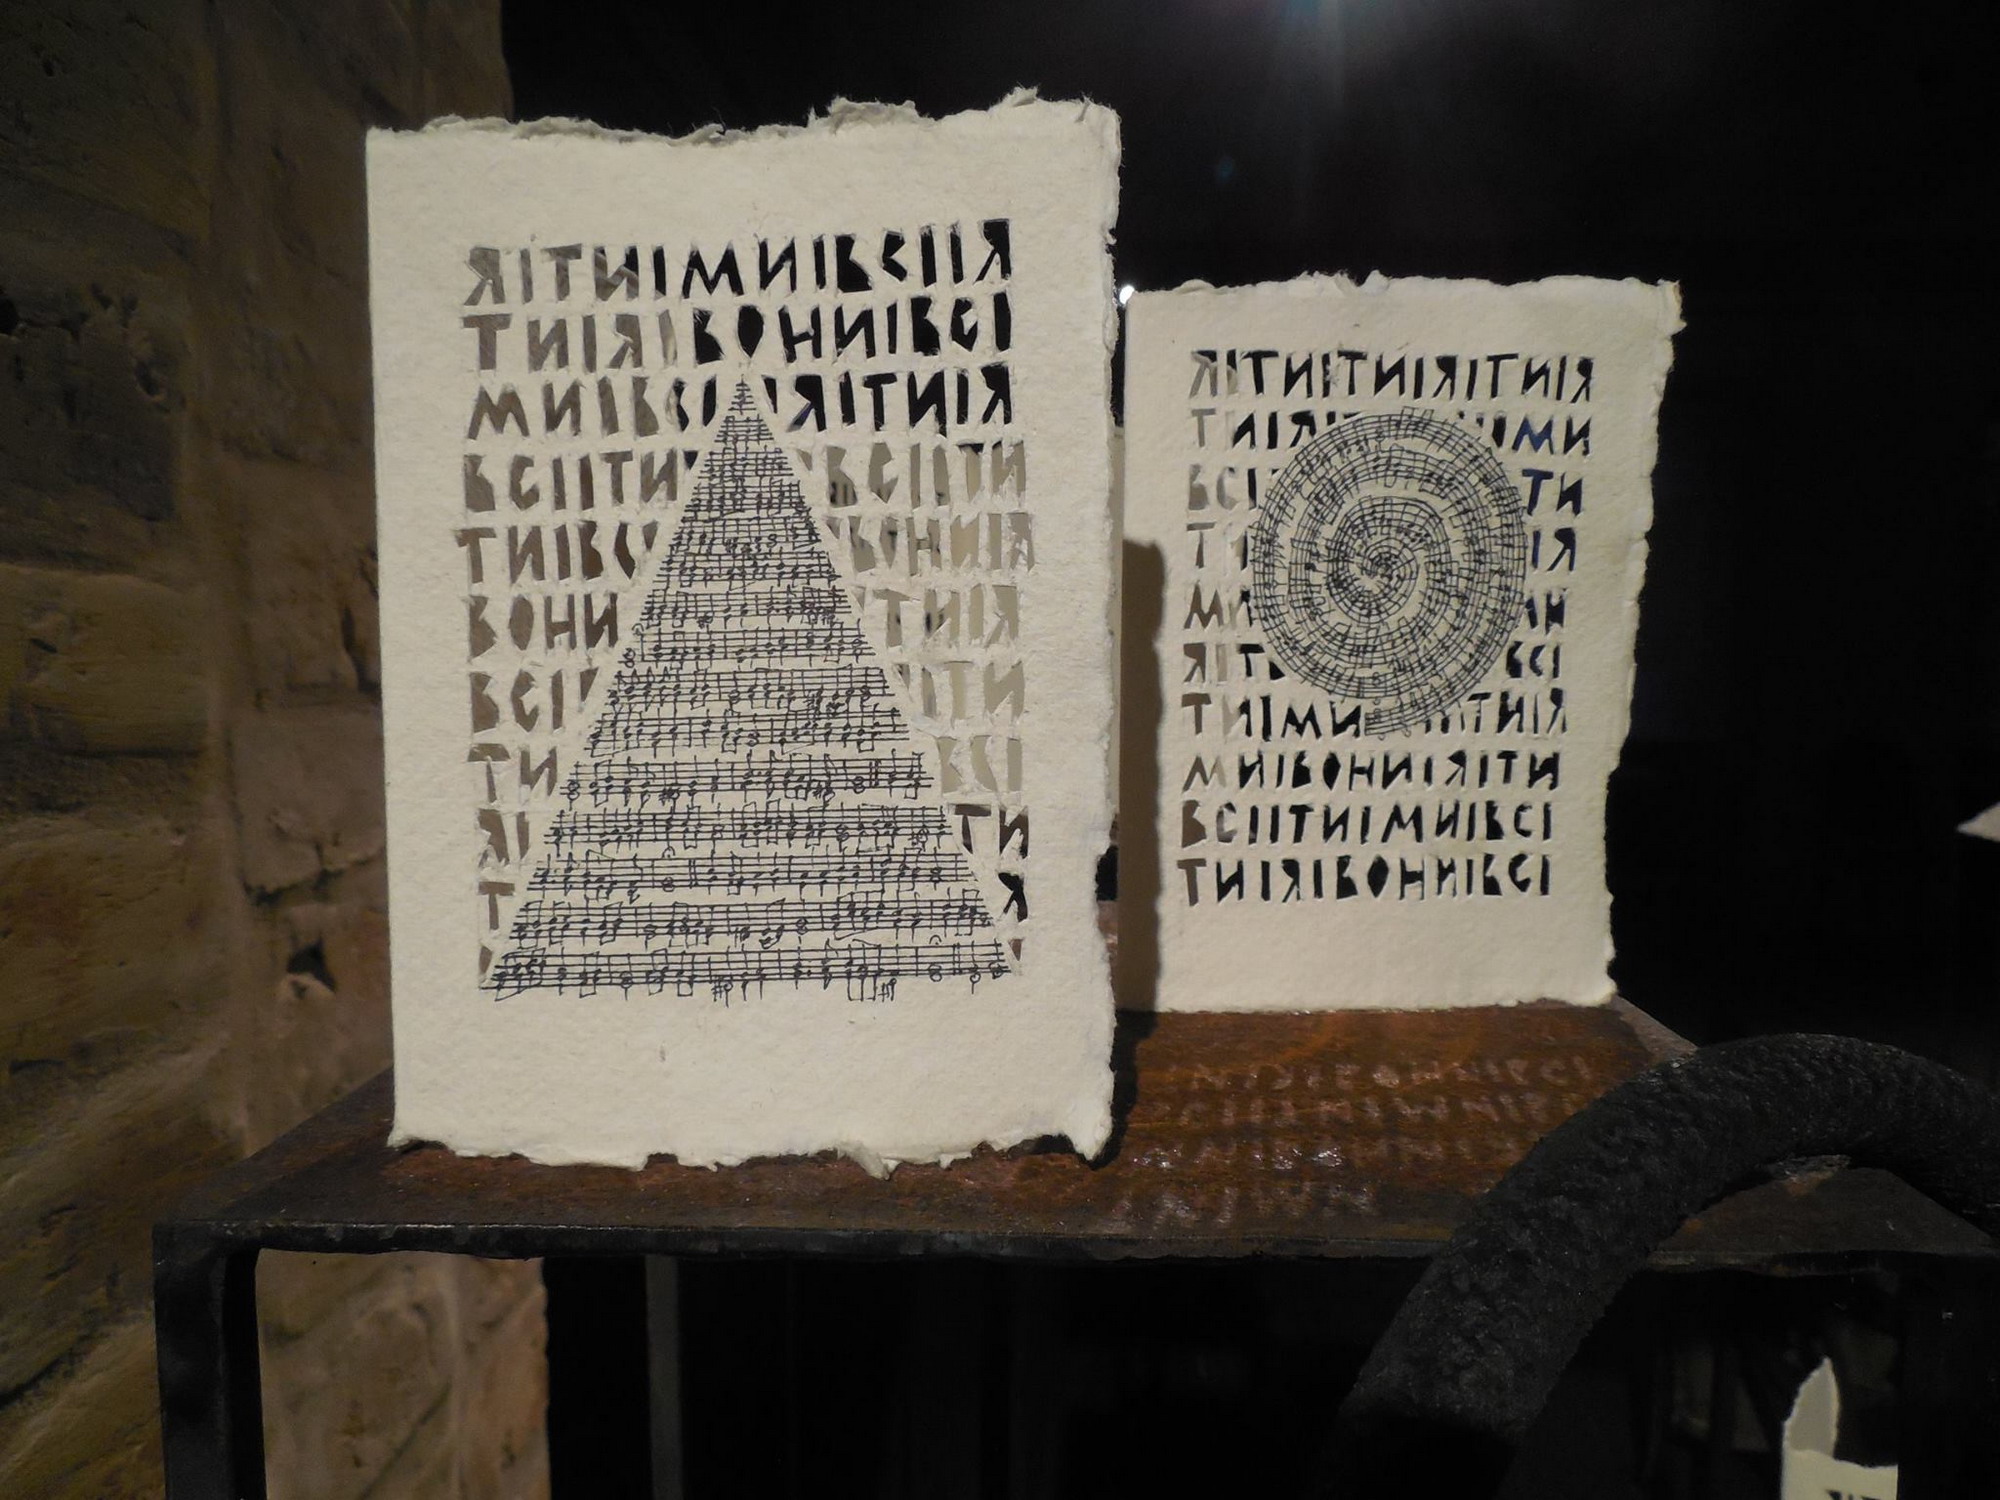 ЯІТИІМИІВСІІЯ
ТИІЯІВОНИІВСІ
МИІВСІ ІЯІТИІЯ
ВСІІТИ ВСІІТИ
ТИІВС ВОНИІЯ
ВОНИ ТИІЯ
ВСІ ІТИ
ТИ ВСІ
ЯІ ТИ
Т Я
ЯІТИІТИІЯІТИІЯ
ТИІЯ МИ
ВСІ ТИ
ТИ ІЯ
МИ
ЯІТ ВСІ
ТИІМИ ТИІЯ
МИІВОНИІЯІТИ
ВСІІТИІМИІВСІ
ТИІЯІВОНИІВСІ